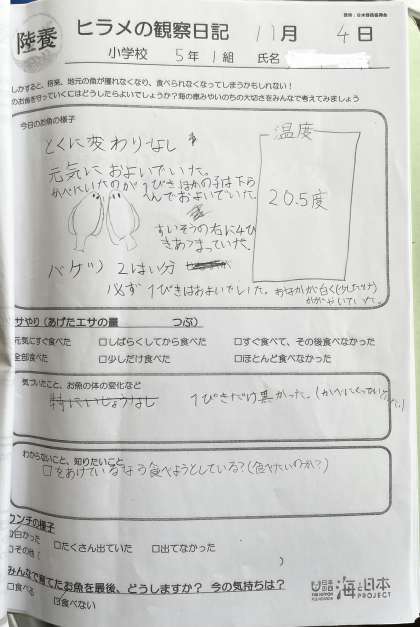 陸養
ヒラメの観察日記 11月 4日
小学校 5年 1組 氏名
しかすると、将来、地元の魚が獲れなくなり、食べられなくなってしまうかもしれない！
のお魚を守っていくにはどうしたらよいでしょうか？海の恵みやいのちの大切さをみんなで考えてみましょう
今日のお魚の様子
とくに変わりなし
温度
元気におよいでいた。
かべにいたのが1ぴきほかの子は下ら
へんでおよいでいた。
20.5度
すいそうの右に4ひ
きあつまっていた。
バケツ 2はい分
必ず1ぴきはおよいでいた。
サやり（あげたエサの量 つぶ）
元気にすぐ食べた □しばらくしてから食べた □すぐ食べて、その後食べなかった
全部食べた □少しだけ食べた □ほとんど食べなかった
気づいたこと、お魚の体の変化など
特にいじょうなし 1ぴきだけ臭かった。
わからないこと、知りたいこと
口をあけているなら食べようとしている？(食べたいのか？)
ウンチの様子
白かった □たくさん出ていた □出てなかった
□その他（ ）
みんなで育てたお魚を最後、どうしますか？ 今の気持ちは？
□食べる
□食べない
日本財団
THE NIPPON FOUNDATION
海と日本
PROJECT